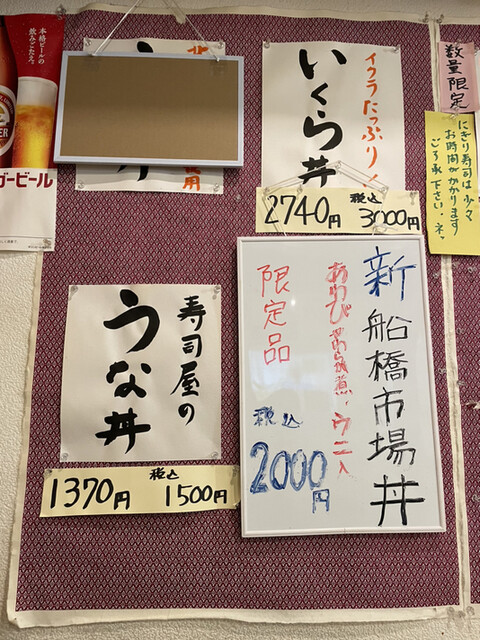 本格ビールの
飲みごたえ。
ゴービール
使用
イクラたっぷり!
いくら丼
2740円 税込 3000円
数量限定
にぎり寿司は少々
お時間がかかります
ご了承下さい。
新船橋市場丼
あわびやわらか煮・ウニ入
限定品
税込
2000円
寿司屋の
うな丼
1370円 税込 1500円